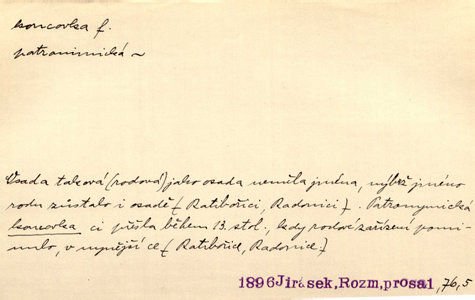 koncovka f.
patronimická ~
Osada taková (rodová) jako osada neměla jména, nýbrž jméno
rodu zůstalo i osadě {Ratibořici, Radonici}. Patronymická
koncovka ci přešla během 13. stol., kdy rodové zařízení pomi-
nulo, v nynější ce {Ratibořice, Radonice}
1896 Jirásek, Rozm, prosa 1, 76, 5